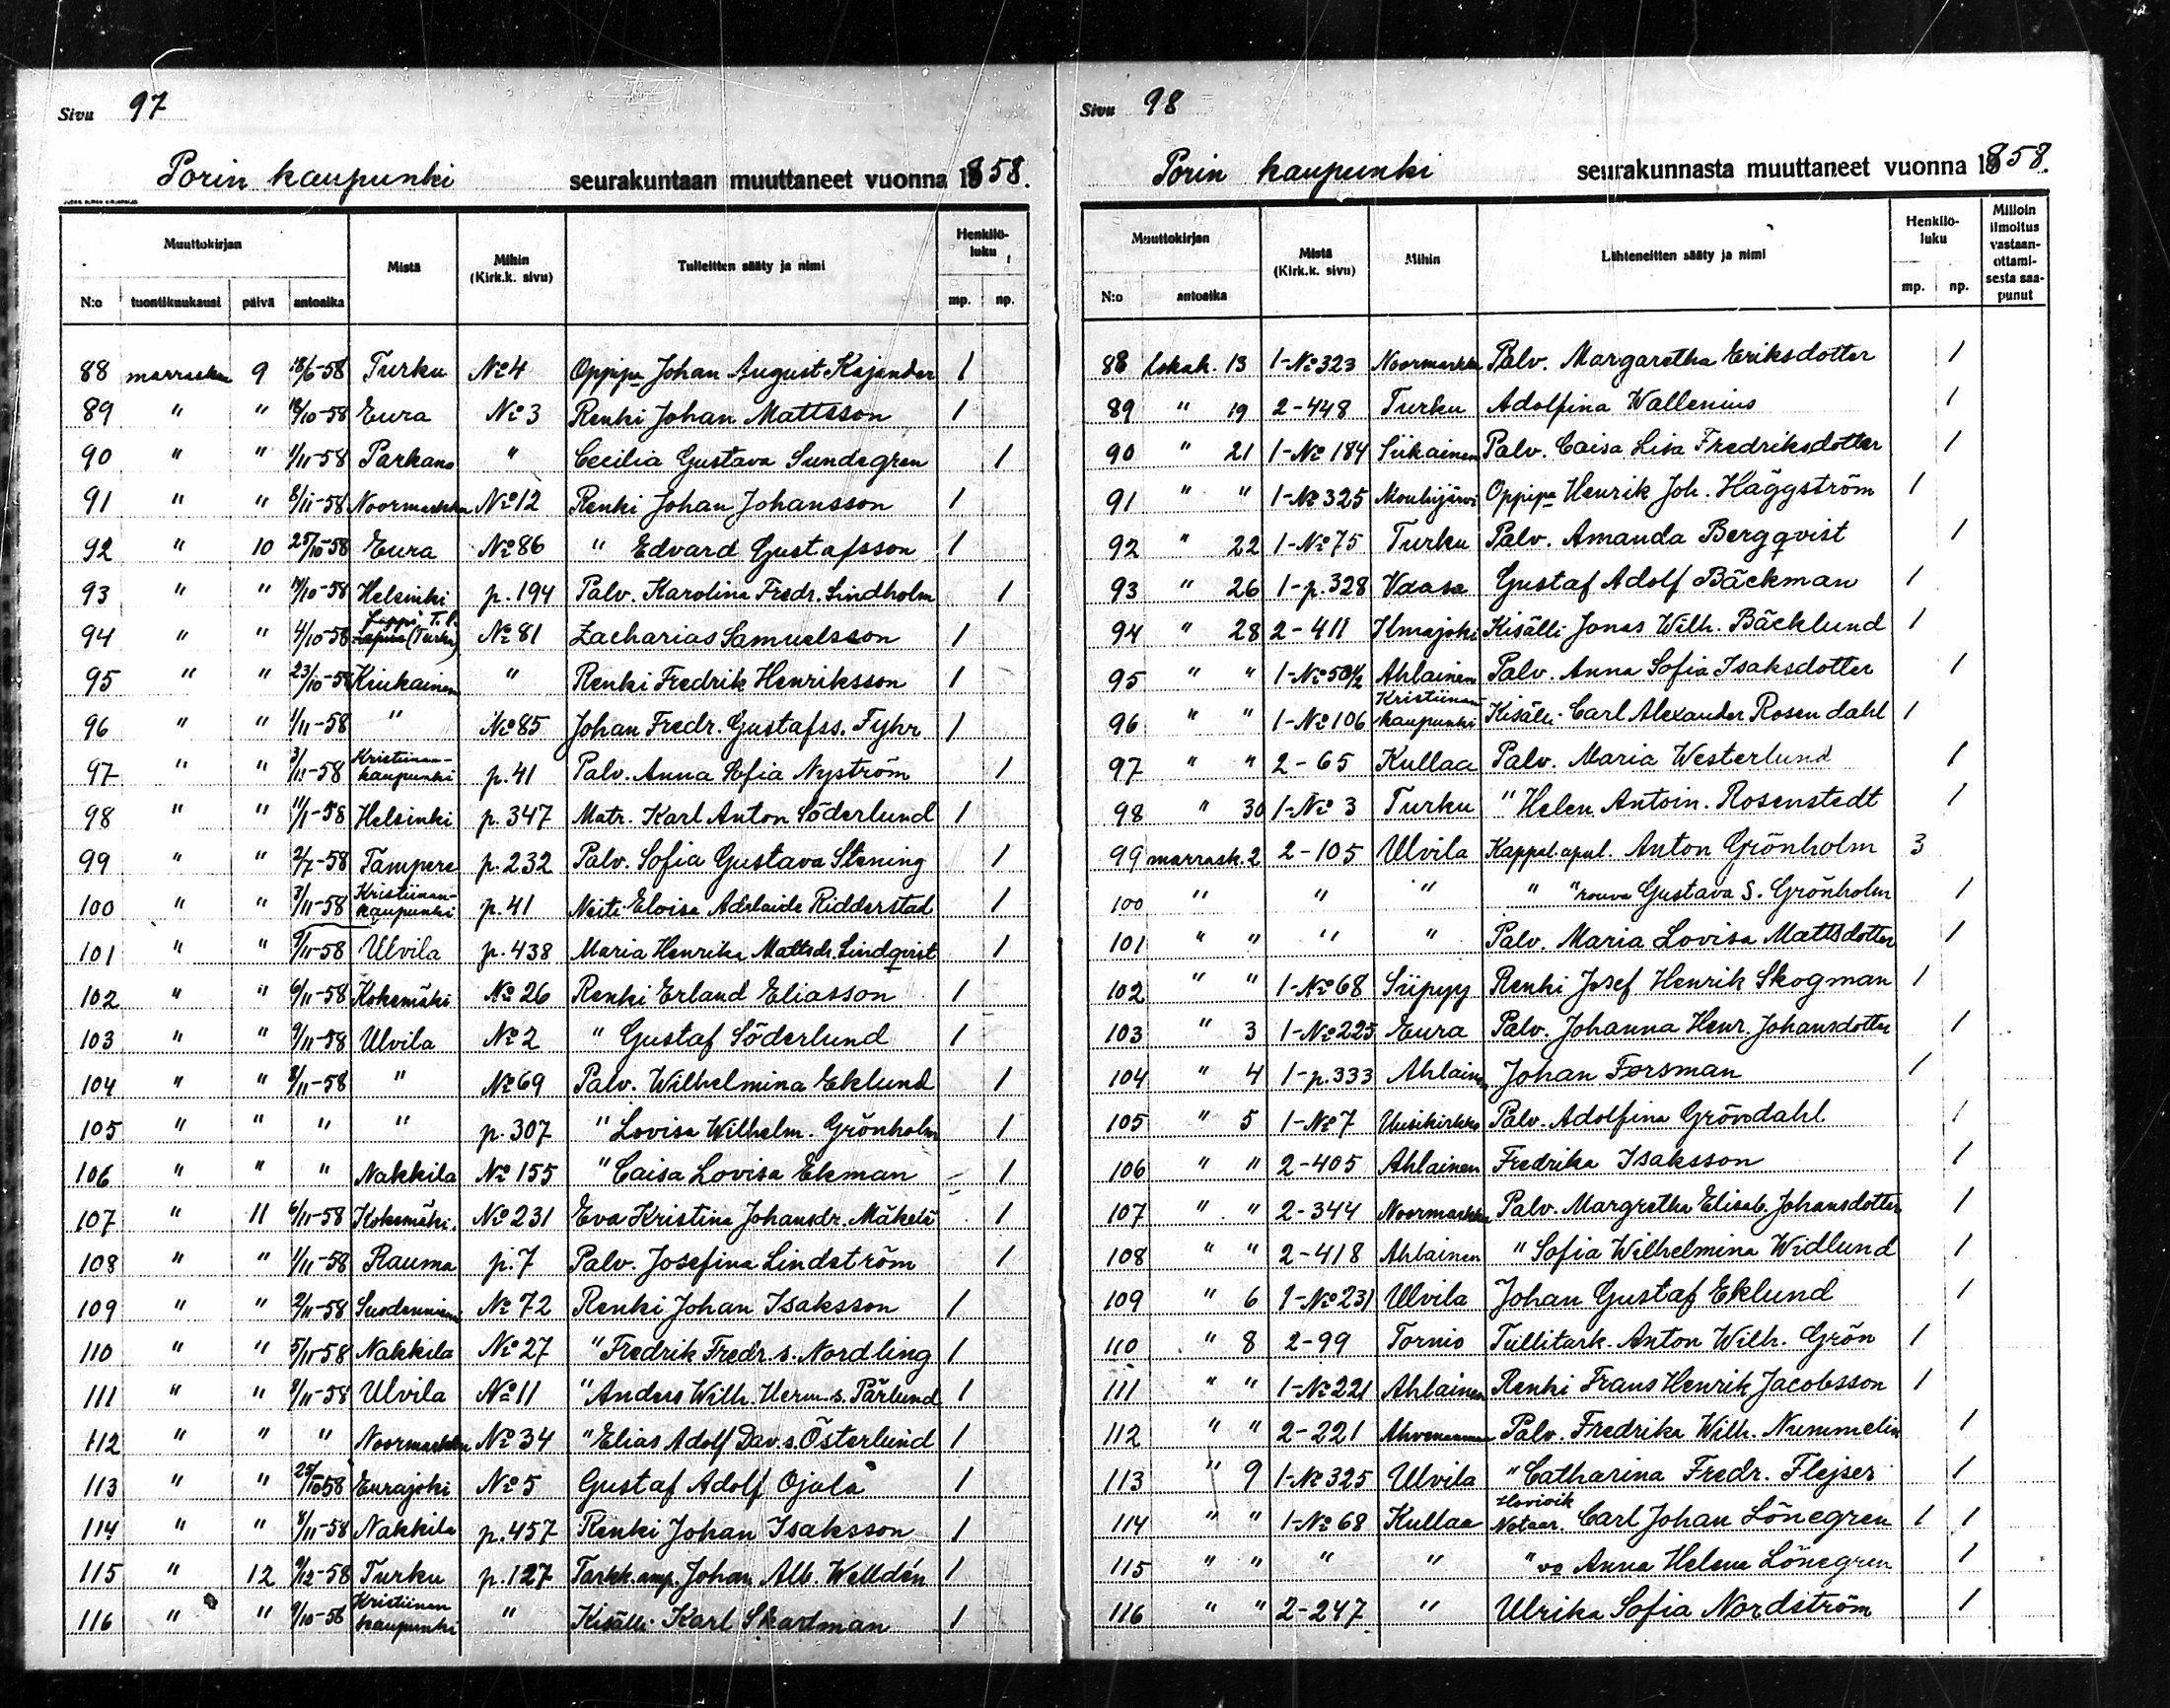 Sivu 97
Porin kaupunki seurakuntaan muuttaneet vuonna 1858.
Muuttokirjan
Mistä
Mihin (Kirk.k. sivu)
Tulleitten sääty ja nimi
Henkilö-luku
N:o tuontikuukausi päivä antoaika mp. np.
88 marrasku 9 18/6-58 Turku No 4 Oppipa Johan August Kajander 1
89 " " 18/10-58 Eura No 3 Renki Johan Mattsson 1
90 " " 1/11-58 Parkano " Cecilia Gustava Sundegren 1
91 " " 8/11-58 Noormarkku No 12 Renki Johan Johansson 1
92 " 10 25/10-58 Eura No 86 " Edvard Gustafsson 1
93 " " /10-58 Helsinki p. 194 Palv. Karolina Fredr. Lindholm 1
94 " " 4/10-58 Lappi T.l. (Turku) No 81 Zacharias Samuelsson 1
95 " " 23/10-58 Kiukainen " Renki Fredrik Henriksson 1
96 " " 1/11-58 " No 85 Johan Fredr. Gustafss. Fyhr 1
97 " " 3/11-58 Kristiinan-kaupunki p. 41 Palv. Anna Sofia Nyström 1
98 " " 11/1-58 Helsinki p. 347 Matr. Karl Anton Söderlund 1
99 " " 2/7-58 Tampere p. 232 Palv. Sofia Gustava Stening 1
100 " " 3/11-58 Kristiinan-kaupunki p. 41 Neiti Eloisa Adelaide Ridderstad 1
101 " " 9/11-58 Ulvila p. 438 Maria Henrika Mattsdr. Lindqvist 1
102 " " 6/11-58 Kokemäki No 26 Renki Erland Eliasson 1
103 " " 9/11-58 Ulvila No 2 " Gustaf Söderlund 1
104 " " 8/11-58 " No 69 Palv. Wilhelmina Eklund 1
105 " " " " p. 307 " Lovisa Wilhelm. Grönholm 1
106 " " " Nakkila No 155 " Caisa Lovisa Ekman 1
107 " 11 6/11-58 Kokemäki. No 231 Eva Kristina Johansdr. Mäkelä 1
108 " " 1/11-58 Rauma p. 7 Palv. Josefina Lindström 1
109 " " 2/11-58 Suodenniemi No 72 Renki Johan Isaksson 1
110 " " 5/11-58 Nakkila No 27 " Fredrik Fredr. s. Nordling 1
111 " " 9/11-58 Ulvila No 11 " Anders Wilh. Herm. s. Pärlund 1
112 " " " Noormarkku No 34 " Elias Adolf Dav. s. Österlund 1
113 " " 25/10-58 Eurajoki No 5 Gustaf Adolf Ojala 1
114 " " 8/11-58 Nakkila p. 457 Renki Johan Isaksson 1
115 " 12 9/12-58 Turku p. 127 Tarkk. amp. Johan Alb. Welldén 1
116 " " 9/10-58 Kristiinan kaupunki " Kisälli Karl Skartman 1
Sivu 98
Porin kaupunki seurakunnasta muuttaneet vuonna 1858.
Muuttokirjan
Mistä (Kirk.k. sivu)
Mihin
Lähteneitten sääty ja nimi
Henkilö-luku
Milloin ilmoitus vastaan-ottami-sesta saa-punut
N:o antoaika mp. np.
88 lokak. 13 1-No 323 Noormarkku Palv. Margaretha Eriksdotter 1
89 " 19 2-448 Turku Adolfina Wallenius 1
90 " 21 1-No 184 Siikainen Palv. Caisa Lisa Fredriksdotter 1
91 " " 1-No 325 Mouhijärvi Oppipa Henrik Joh. Häggström 1
92 " 22 1-No 75 Turku Palv. Amanda Bergqvist 1
93 " 26 1-p. 328 Vaasa Gustaf Adolf Bäckman 1
94 " 28 2-411 Ilmajoki Kisälli Jonas Wilh. Bäcklund 1
95 " " 1-No 50½ Ahlainen Palv. Anna Sofia Isaksdotter 1
96 " " 1-No 106 Kristiinan-kaupunki Kisälli Carl Alexander Rosendahl 1
97 " " 2-65 Kullaa Palv. Maria Westerlund 1
98 " 30 1-No 3 Turku " Helen Antoin. Rosenstedt 1
99 marrask. 2 2-105 Ulvila Kappal. apul. Anton Grönholm 3
100 " " " " " rouva Gustava S. Grönholm 1
101 " " " " Palv. Maria Lovisa Mattsdotter 1
102 " " 1-No 68 Siipyy Renki Josef Henrik Skogman 1
103 " 3 1-No 225 Eura Palv. Johanna Henr. Johansdotter 1
104 " 4 1-p. 333 Ahlainen Johan Forsman 1
105 " 5 1-No 7 Uusikirkko Palv. Adolfina Gröndahl 1
106 " " 2-405 Ahlainen Fredrika Isaksson 1
107 " " 2-344 Noormarkku Palv. Margretha Elisab. Johansdotter 1
108 " " 2-418 Ahlainen " Sofia Wilhelmina Widlund 1
109 " 6 1-No 231 Ulvila Johan Gustaf Eklund 1
110 " 8 2-99 Tornio Tullitark. Anton Wilh. Grön 1
111 " " 1-No 221 Ahlainen Renki Frans Henrik Jacobsson 1
112 " " 2-221 Ahvenanmaa Palv. Fredrika Wilh. Nummelin 1
113 " 9 1-No 325 Ulvila " Catharina Fredr. Flejser 1
114 " " 1-No 68 Kullaa Hovioik Notaar. Carl Johan Lönegren 1 1
115 " " " " " vo Anna Helena Lönegren 1
116 " " 2-247 " Ulrika Sofia Nordström 1